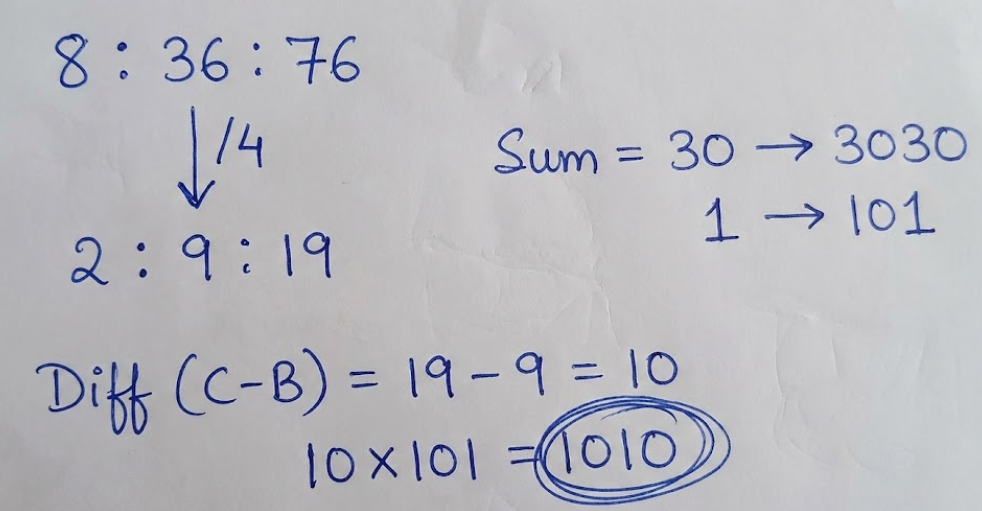 8 : 36 : 76
/4
2 : 9 : 19
Sum = 30 → 3030
1 → 101
Diff (C-B) = 19 - 9 = 10
10 x 101 = 1010